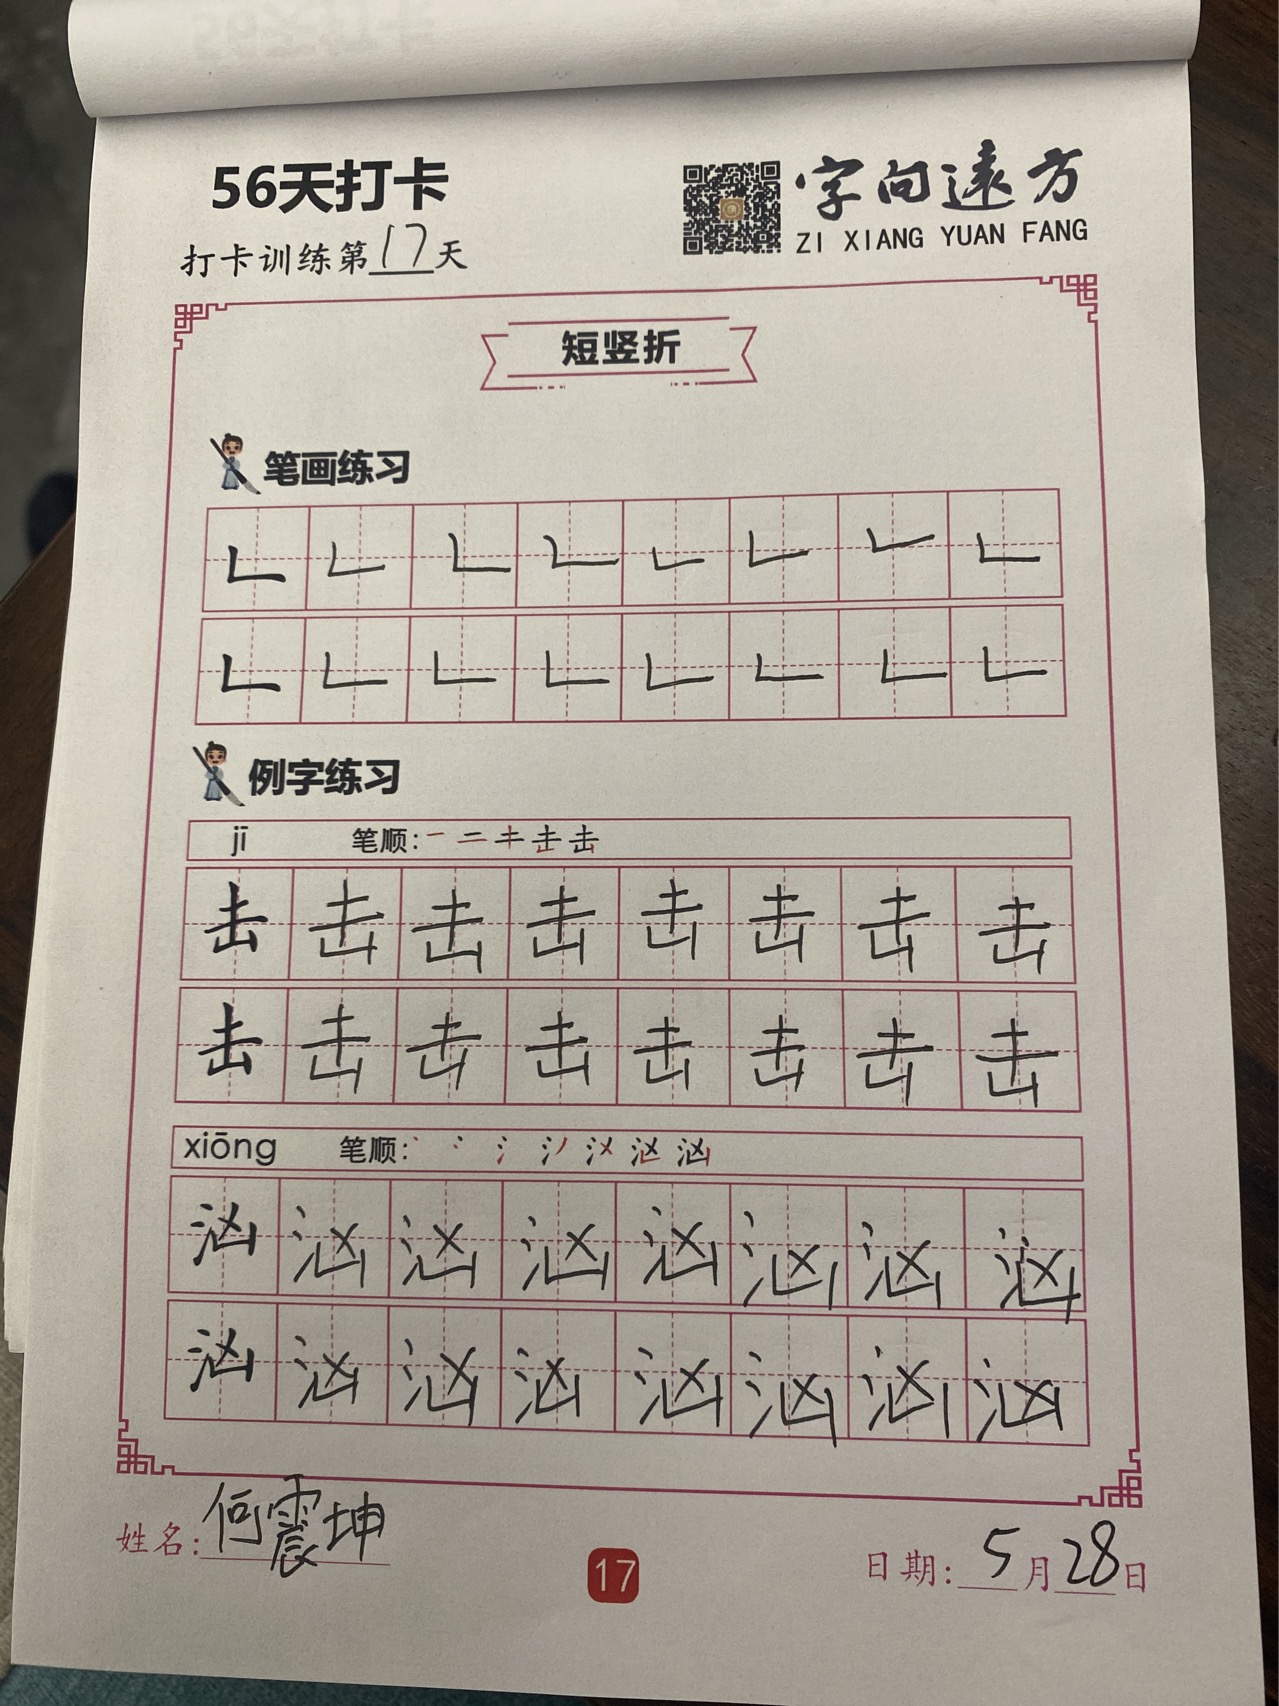 56天打卡
字向遠方
ZI XIANG YUAN FANG
打卡训练第17天
短竖折
笔画练习
𠃊 𠃊 𠃊 𠃊 𠃊 𠃊 𠃊 𠃊
𠃊 𠃊 𠃊 𠃊 𠃊 𠃊 𠃊 𠃊
例字练习
jī 笔顺:
击 击 击 击 击 击 击 击
击 击 击 击 击 击 击 击
xiōng 笔顺:
汹 汹 汹 汹 汹 汹 汹 汹
汹 汹 汹 汹 汹 汹 汹 汹
姓名:何震坤
17
日期:5月28日